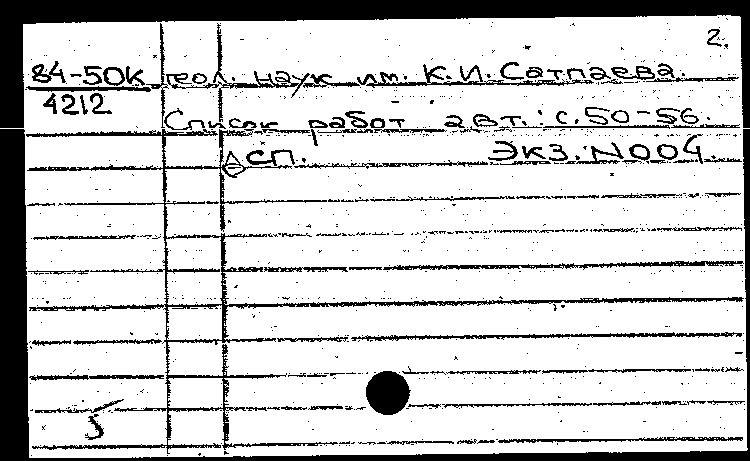 2.
84-50К геол. наук им. К.И.Сатпаева.
4212
Список работ авт.: с.50-56.
СП. Экз.N004.
5